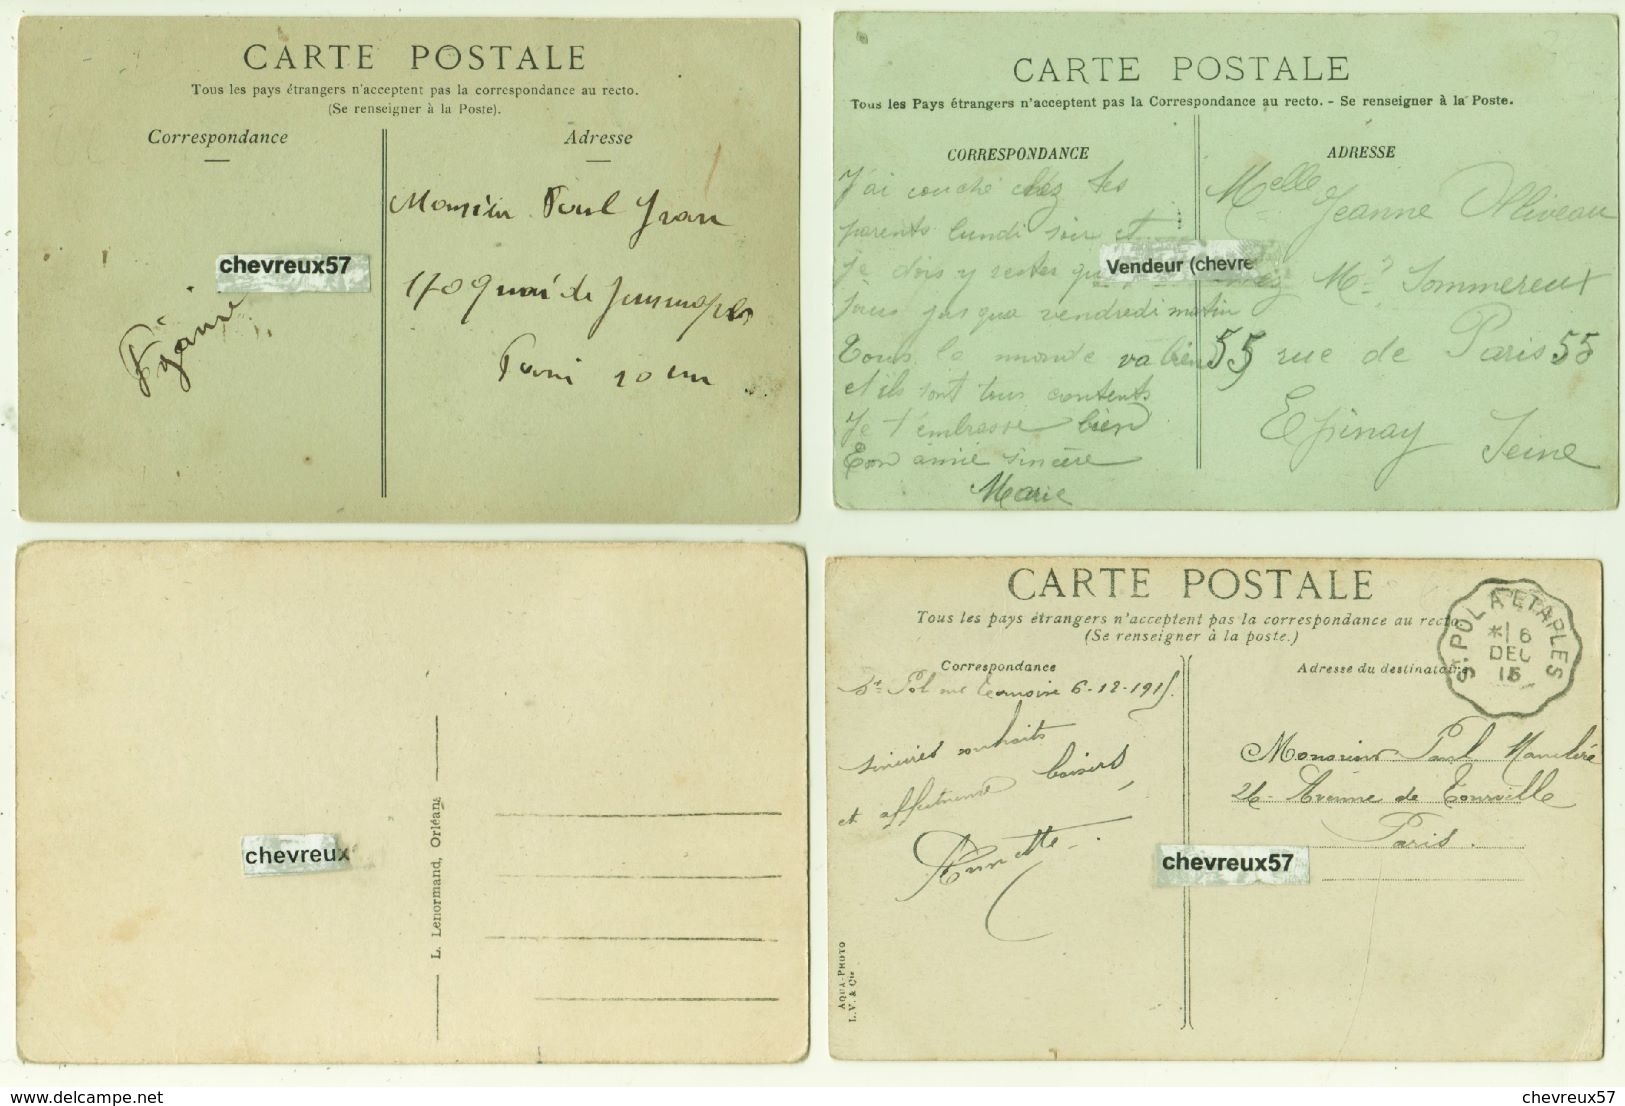 CARTE POSTALE
Tous les pays étrangers n'acceptent pas la correspondance au recto.
(Se renseigner à la Poste).
Correspondance
Adresse
Monsieur Paul
170 Quai de Jemmapes
chevreux57
CARTE POSTALE
Tous les Pays étrangers n'acceptent pas la Correspondance au recto. - Se renseigner à la Poste.
CORRESPONDANCE
ADRESSE
J'ai couché chez tes
parents lundi soir et
je dois y rester
jours jusqua vendredi matin
Tous le monde va bien
et ils sont tous contents
Je t'embrasse bien
Ton amie sincère
Marie
Melle Jeanne Oliveau
Mr Sommereux
55 rue de Paris 55
Epinay
Seine
Vendeur (chevre
L. Lenormand, Orléans
chevreux
CARTE POSTALE
Tous les pays étrangers n'acceptent pas la correspondance au recto
(Se renseigner à la poste.)
Correspondance
Adresse du destinataire
ST. POL A ETAPLES
* 6
DEC
15
St Pol sur Ternoise 6-12-1915.
sincères souhaits
et affectueux baisers
Monsieur Paul
26 Avenue de Tourville
Paris.
chevreux57
AQUA-PHOTO
L. V. & Cie
www.delcampe.com
chevreux57